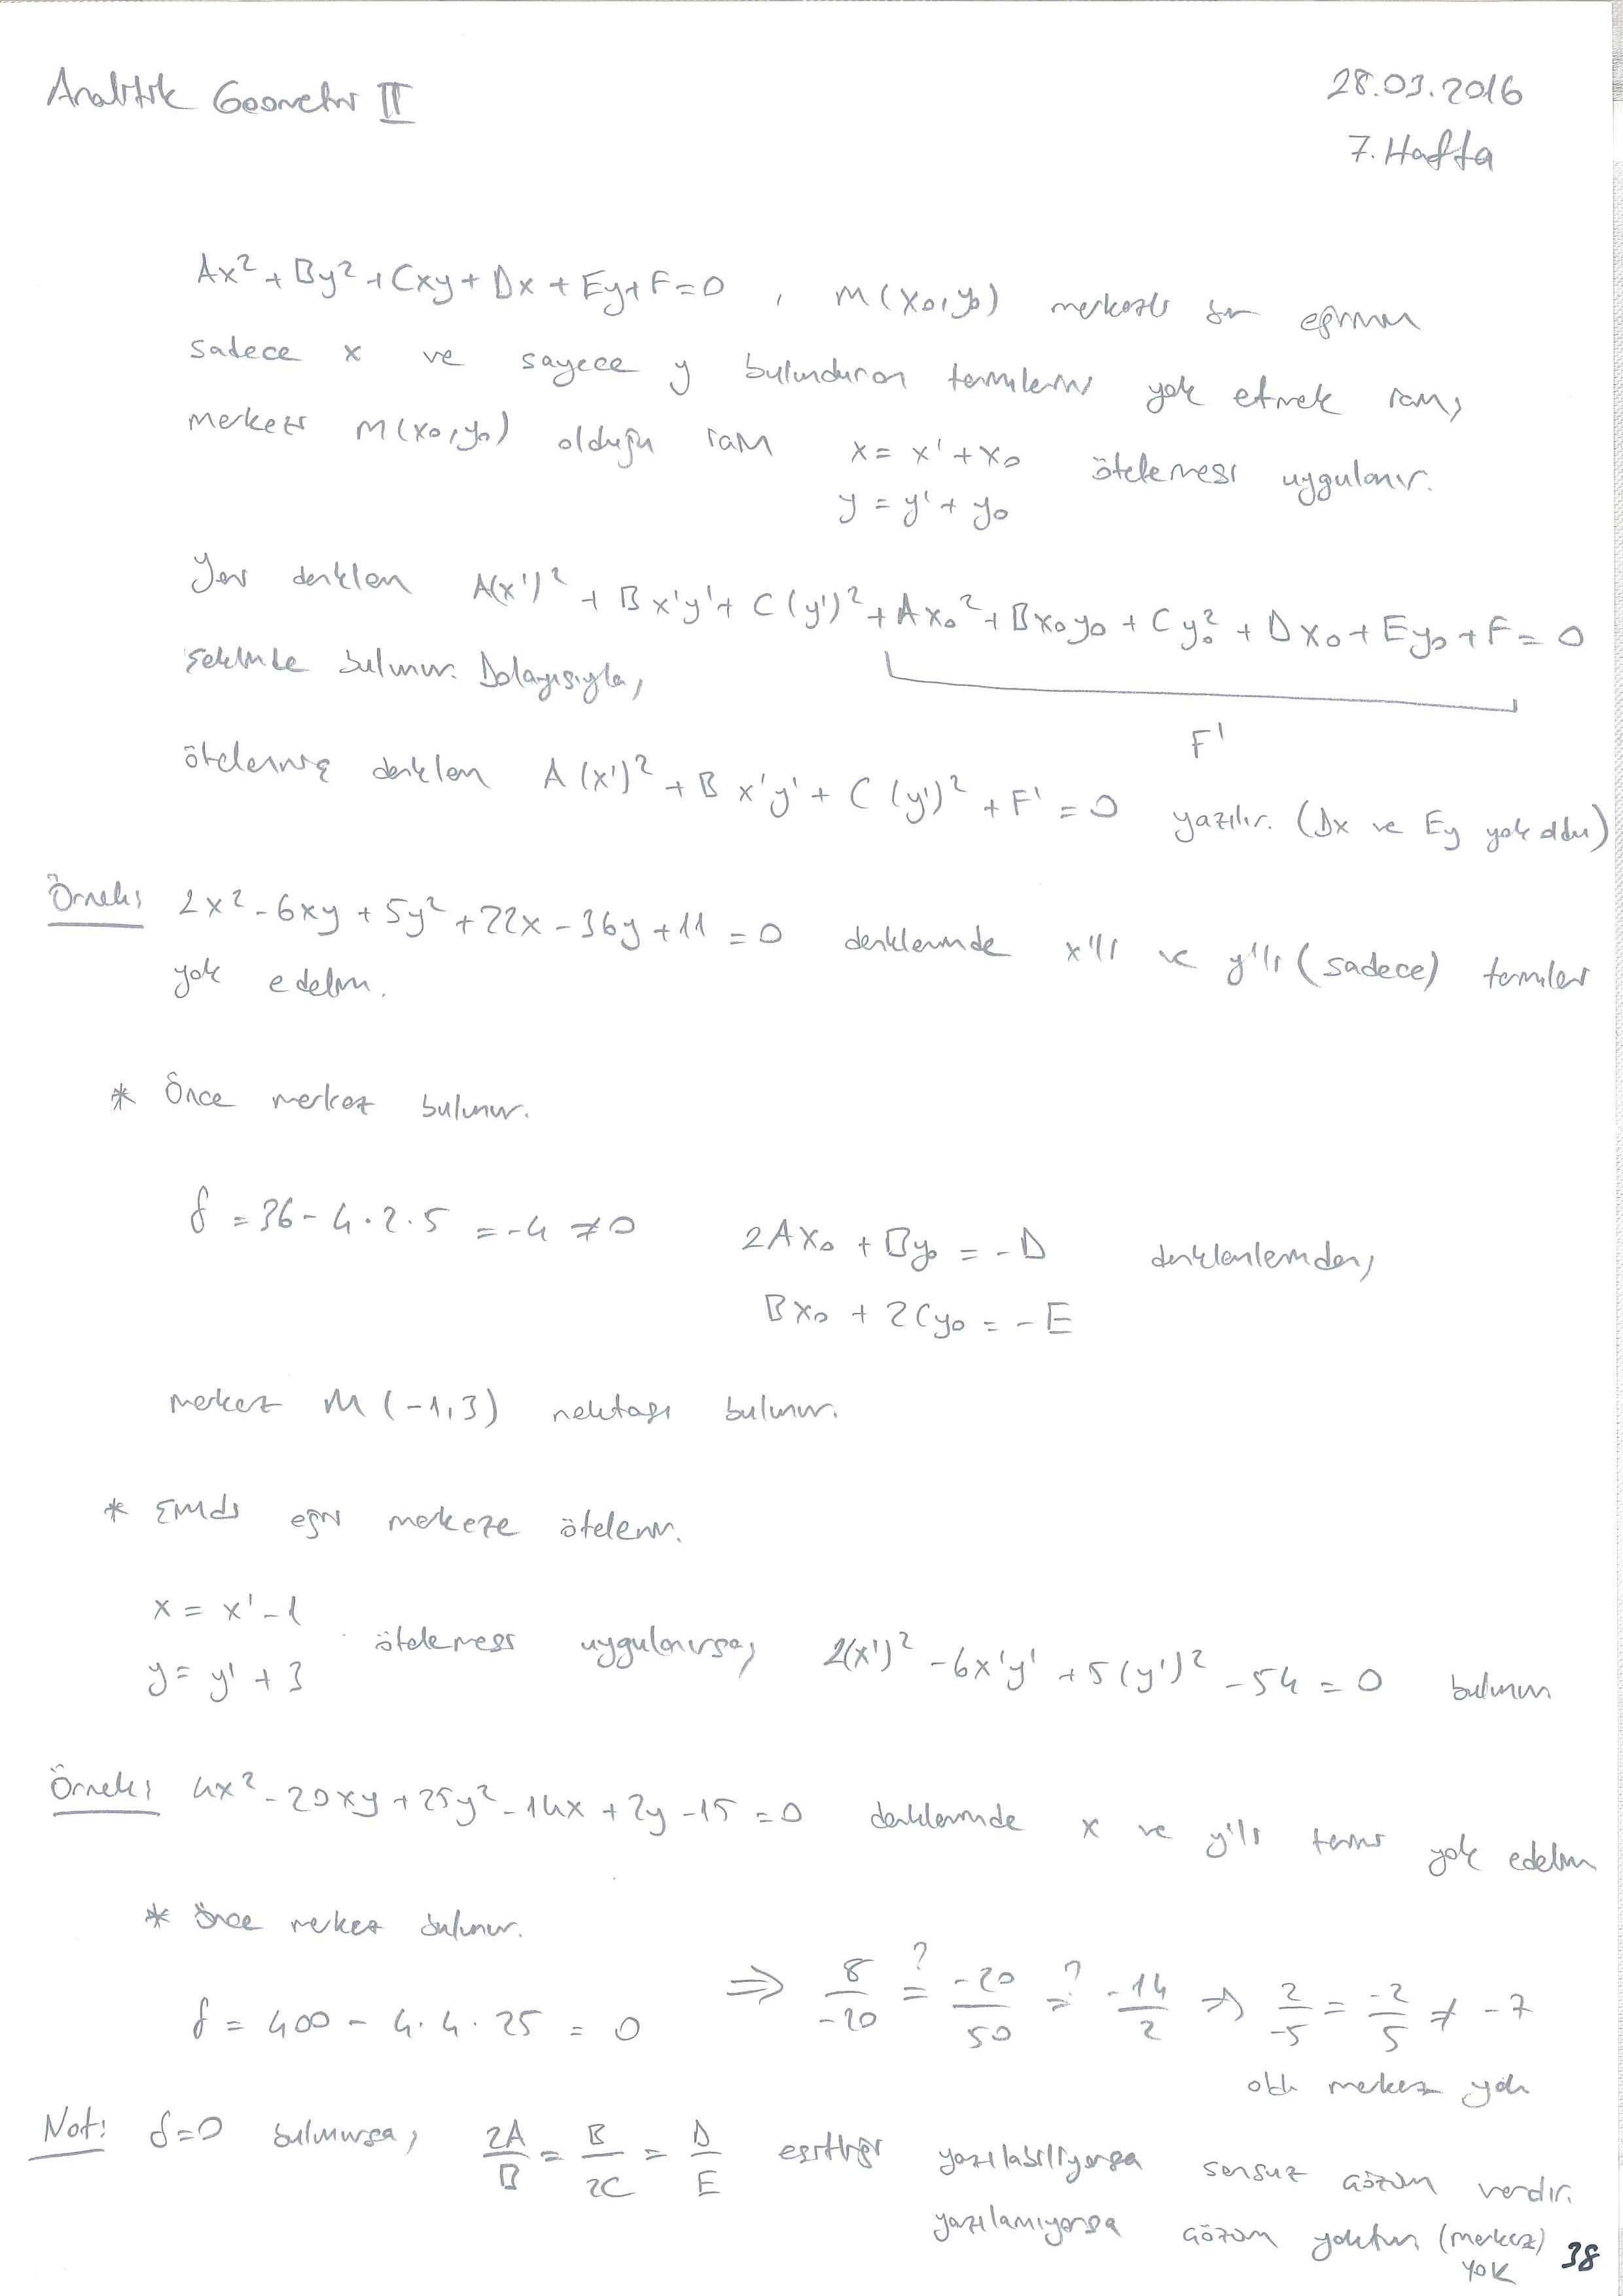 Analitik Geometri II
28.03.2016
7. Hafta
Ax² + By² + Cxy + Dx + Ey + F = 0 , M(x₀,y₀) merkezli bir eğrinin
sadece x ve sayece y bulunduran terimlerini yok etmek için,
merkezi M(x₀,y₀) olduğu için x = x' + x₀ ötelemesi uygulanır.
y = y' + y₀
Yeni denklem A(x')² + Bx'y' + C(y')² + Ax₀² + Bx₀y₀ + Cy₀² + Dx₀ + Ey₀ + F = 0
şeklinde bulunur. Dolayısıyla,
F'
ötelenmiş denklem A(x')² + Bx'y' + C(y')² + F' = 0 yazılır. (Dx ve Ey yok oldu)
Örnek: 2x² - 6xy + 5y² + 22x - 36y + 11 = 0 denkleminde x'li ve y'li (sadece) terimleri
yok edelim.
* Önce merkez bulunur.
δ = 36 - 4.2.5 = -4 ≠ 0 2Ax₀ + By₀ = -D denklemlerinden,
Bx₀ + 2Cy₀ = -E
merkez M(-1,3) noktası bulunur.
* Şimdi eğri merkeze ötelenir.
x = x' - 1
y = y' + 3 ötelemesi uygulanırsa, 2(x')² - 6x'y' + 5(y')² - 54 = 0 bulunur
Örnek: 4x² - 20xy + 25y² - 14x + 2y - 15 = 0 denkleminde x ve y'li terimi yok edelim
* Önce merkez bulunur.
δ = 400 - 4.4.25 = 0 ⇒ 8/-20 =? -20/50 =? -14/2 ⇒ 2/-5 = -2/5 ≠ -7
old. merkez yok
Not: δ=0 bulunursa, 2A/B = B/2C = D/E eşitliği yazılabiliyorsa sonsuz çözüm vardır.
yazılamıyorsa çözüm yoktur (merkez)
yok
38